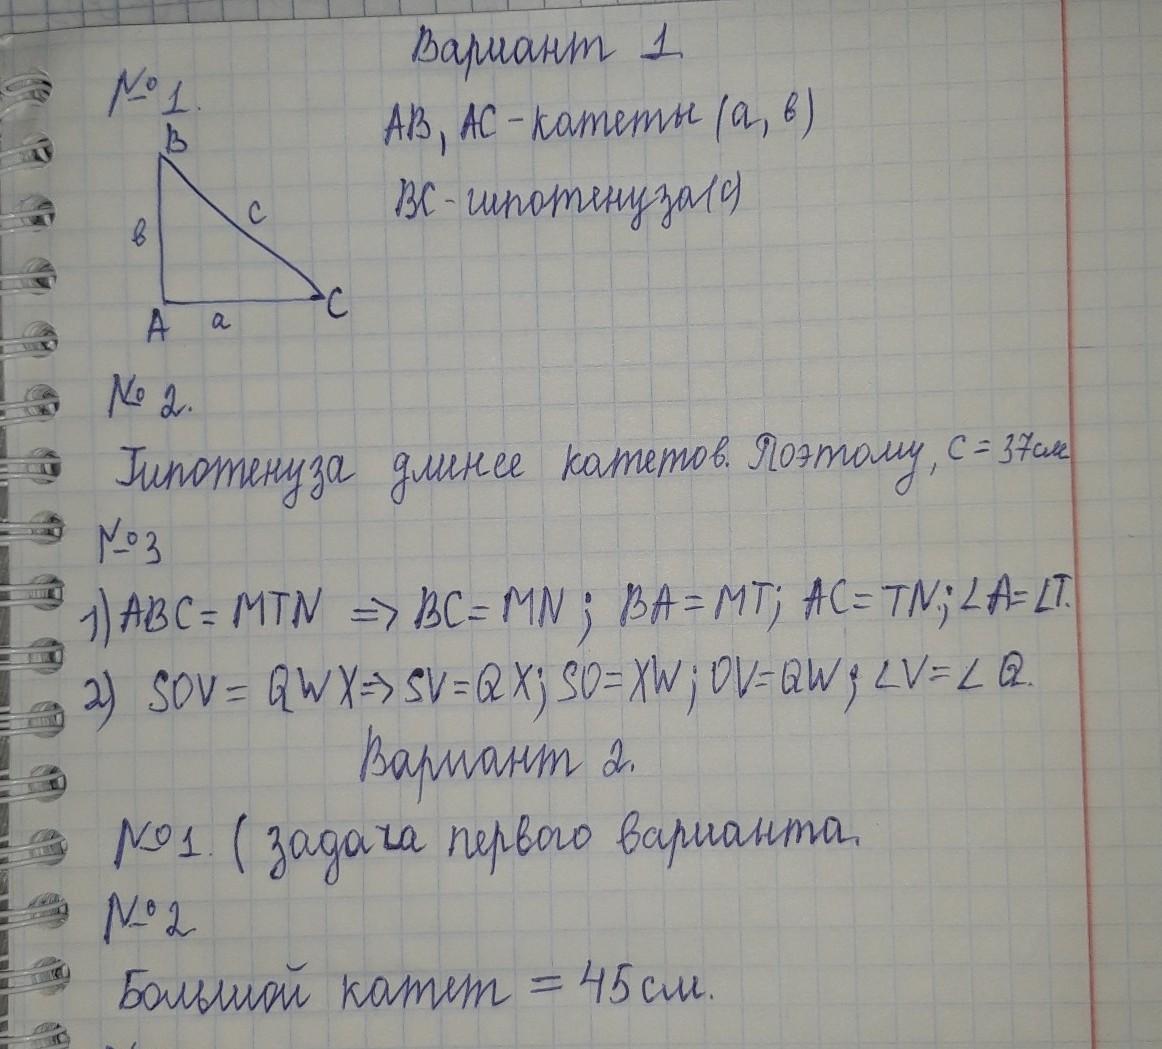 Вариант 1
№1.
B
AB, AC - катеты (a, в)
BC - гипотенуза (c)
c
в
A
a
C
№ 2.
Гипотенуза длинее катетов. Поэтому, C = 37см
№3
1) ABC = MTN => BC = MN; BA = MT; AC = TN; ∠A = ∠T.
2) SOV = QWX => SV = QX; SO = XW; OV = QW; ∠V = ∠Q.
Вариант 2.
№1. ( задача первого варианта.
№2
Большой катет = 45см.